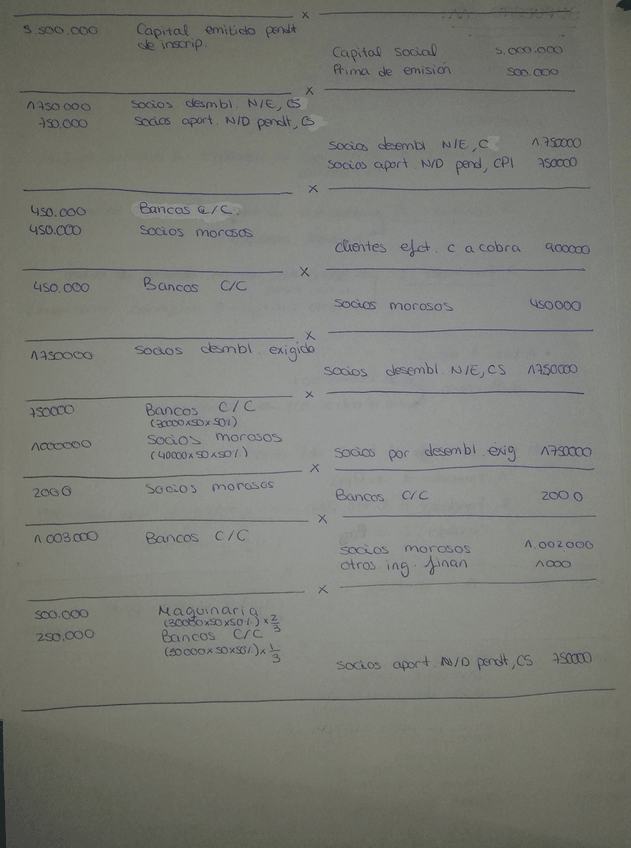 x
5.500.000 Capital emitido pendt
de inscrip.
Capital social 5.000.000
Prima de emisión 500.000
x
1750000 Socios desmbl. N/E, CS
750.000 Socios aport. N/D pendt, CS
Socios desembl N/E, C 1750000
Socios aport N/D pend, CPI 750000
x
450.000 Bancos C/C.
450.000 Socios morosos
Clientes efct. c a cobra 900000
x
450.000 Bancos C/C
Socios morosos 450000
x
1750000 Socios desmbl. exigido
Socios desembl N/E, CS 1750000
x
750000 Bancos C/C
(30000x50x50%)
1000000 Socios morosos
(40000x50x50%)
Socios por desembl. exig 1750000
x
2000 Socios morosos
Bancos C/C 2000
x
1.003.000 Bancos C/C
Socios morosos 1.002.000
otros ing. finan 1000
x
500.000 Maquinaria
(30000x50x50%)x 2/3
250.000 Bancos C/C
(30000x50x50%)x 1/3
Socios aport. N/D pendt, CS 750000